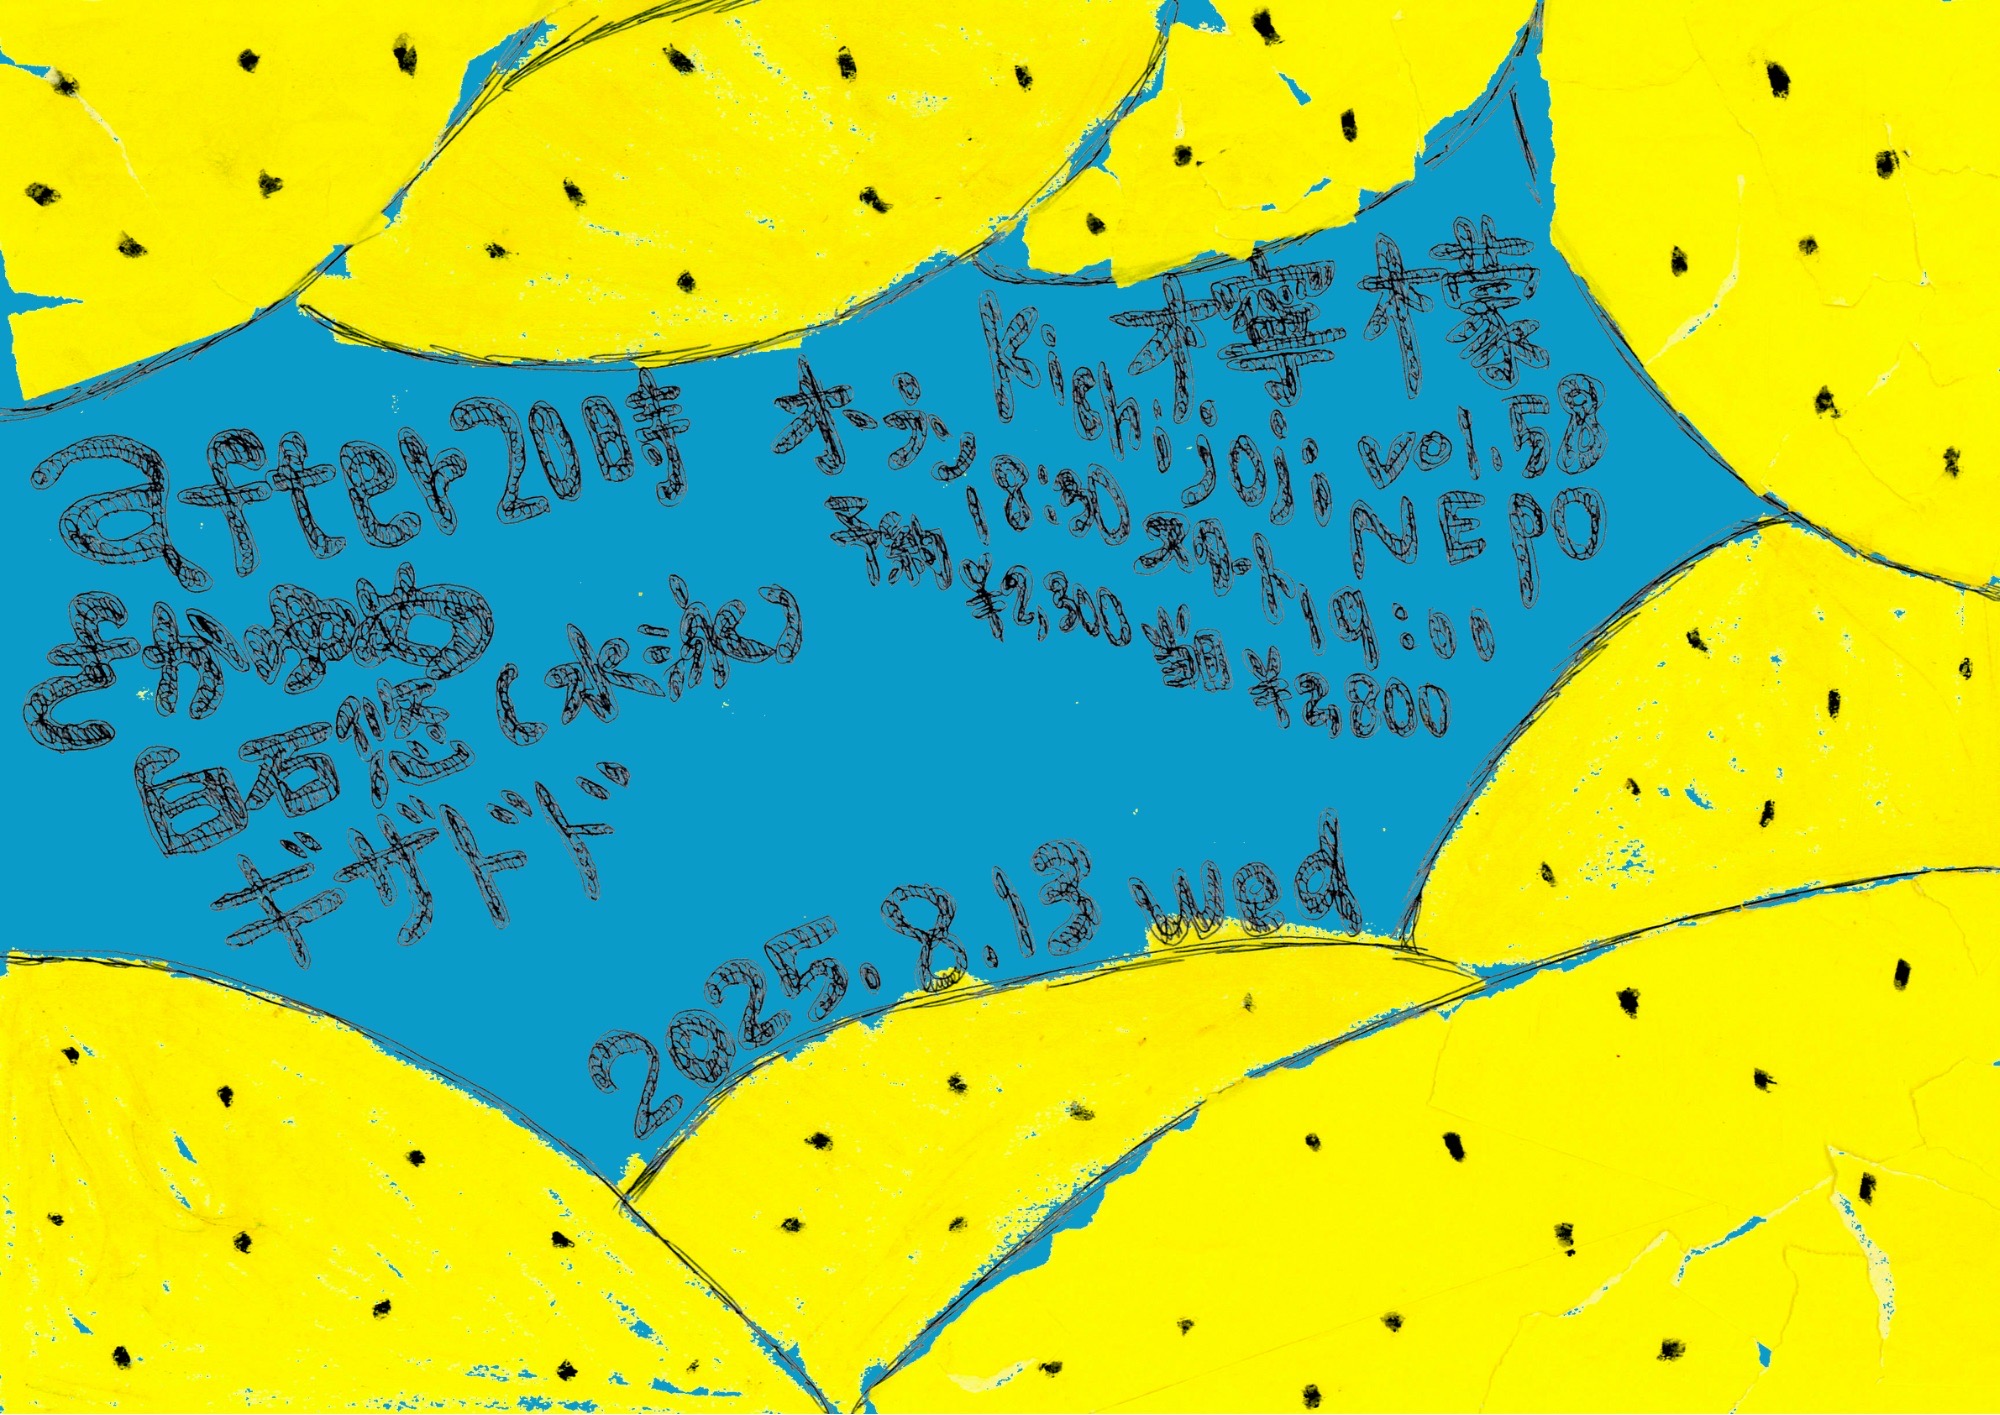 檸檬 vol.58
Kichijoji NEPO
オープン 18:30 スタート 19:00
予約 ¥2,300 当日 ¥2,800
after20時
さかゆめ
白石悠(水≒氷)
ギザドド
2025.8.13 wed